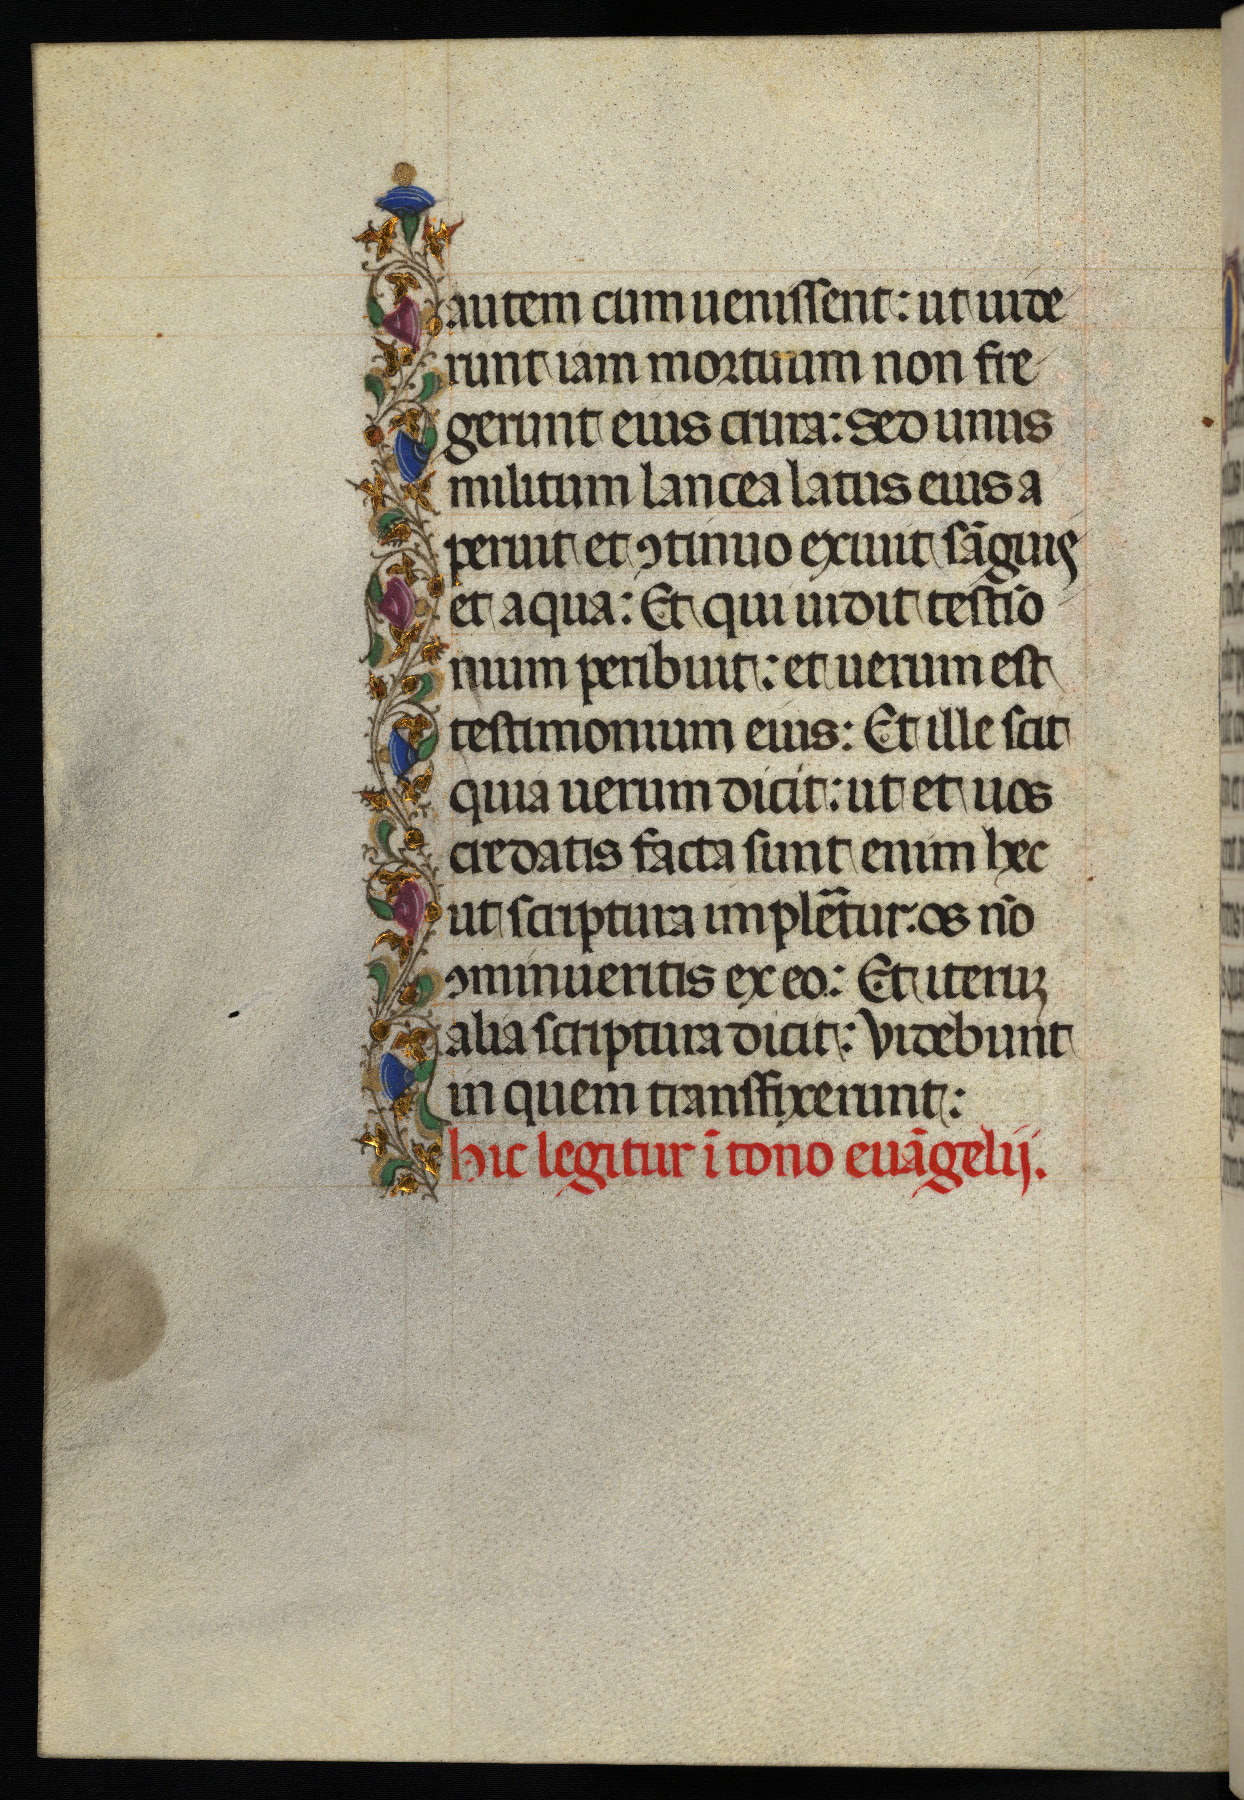 autem cum uenissent: ut uide
runt iam mortuum non fre
gerunt eius crura: Sed unus
militum lancea latus eius a
peruit et ꝯtinuo exiuit sāguis
et aqua: Et qui uidit testīo
nium peribuit: et uerum est
testimonium eius: Et ille scit
quia uerum dicit: ut et uos
credatis facta sunt enim hec
ut scriptura implēt̄ur. os nō
ꝯminueritis ex eo: Et iteruꝫ
alia scriptura dicit: Videbunt
in quem transfixerunt:
hic legitur ī tono euāgelij.